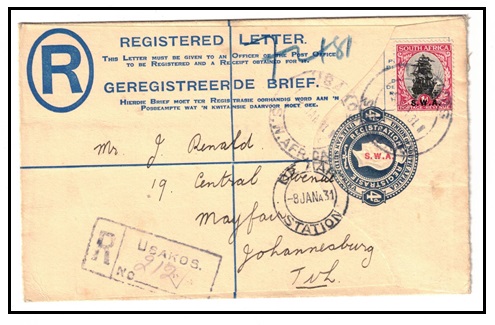 R
REGISTERED LETTER.
THIS LETTER MUST BE GIVEN TO AN OFFICER OF THE POST OFFICE
TO BE REGISTERED AND A RECEIPT OBTAINED FOR IT.
GEREGISTREERDE BRIEF.
HIERDIE BRIEF MOET TER REGISTRASIE OORHANDIG WORD AAN 'N
POSBEAMPTE WAT 'N KWITANSIE DAARVOOR MOET GEE.
SOUTH AFRICA
S.W.A.
REGISTRATION
4D
S.W.A.
REGISTRASIE
Mr. J. Renald.
19, Central Avenue
Mayfair
Johannesburg
Tvl.
-8 JAN 31
STATION
R
USAKOS.
No